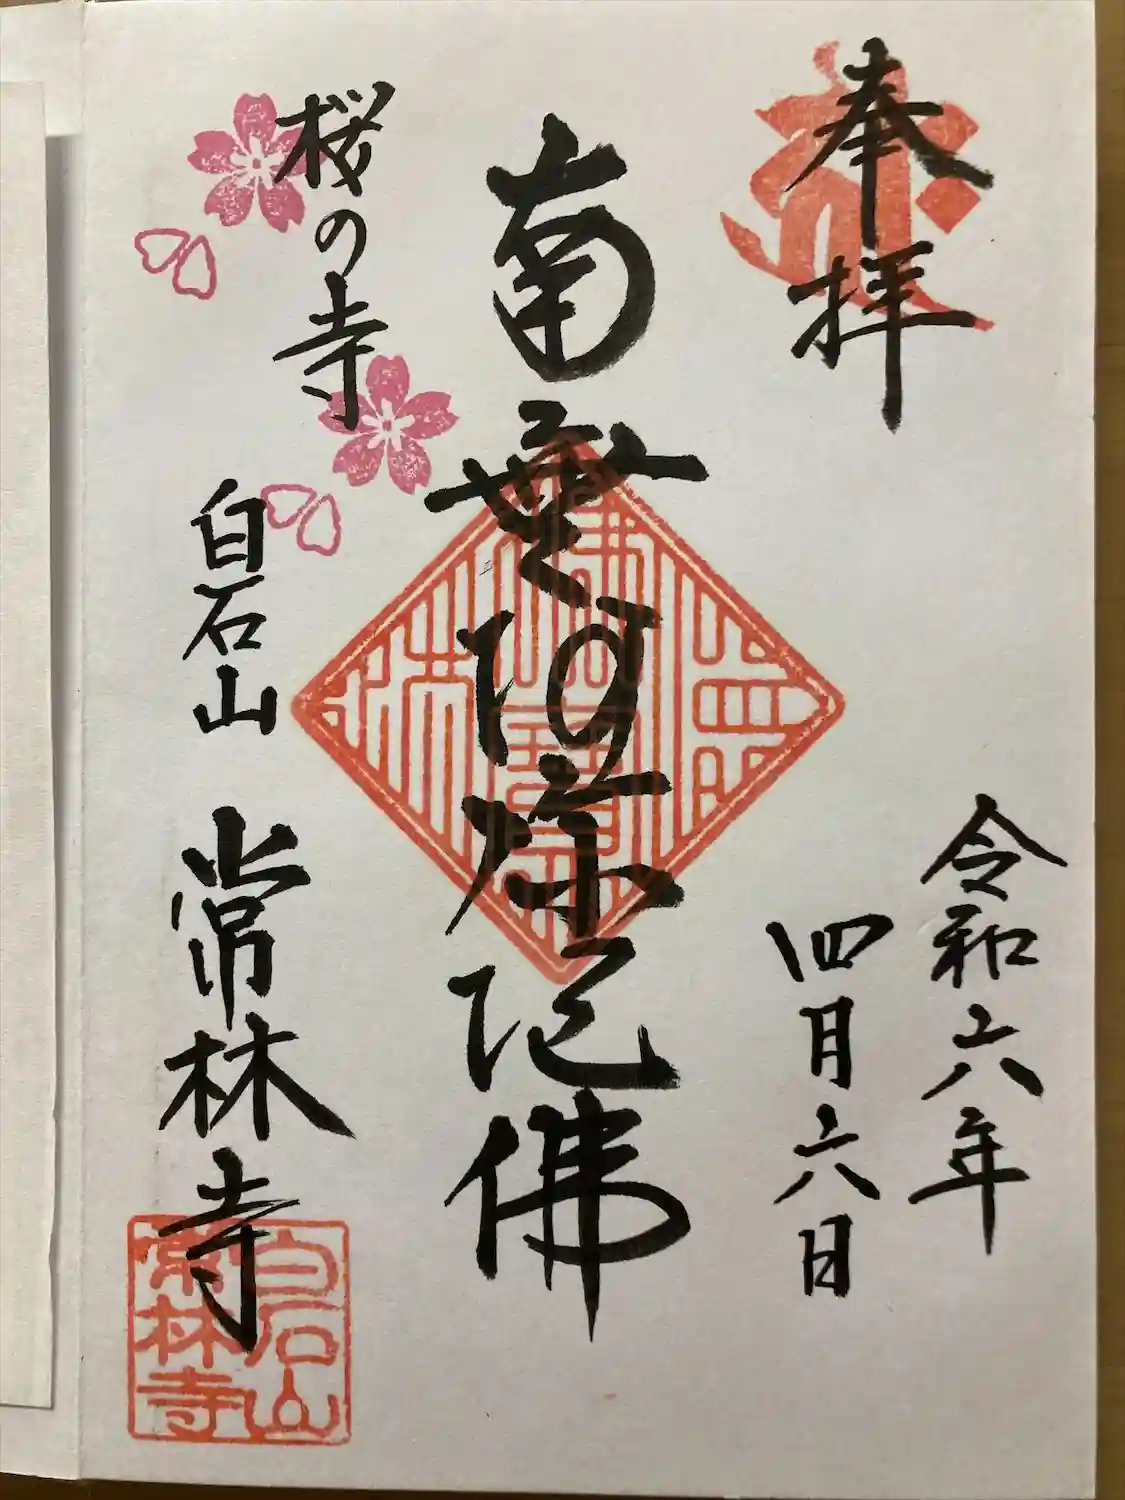 奉拝
令和六年
四月六日
南無阿弥陀佛
桜の寺
白石山
常林寺
白石山
常林寺